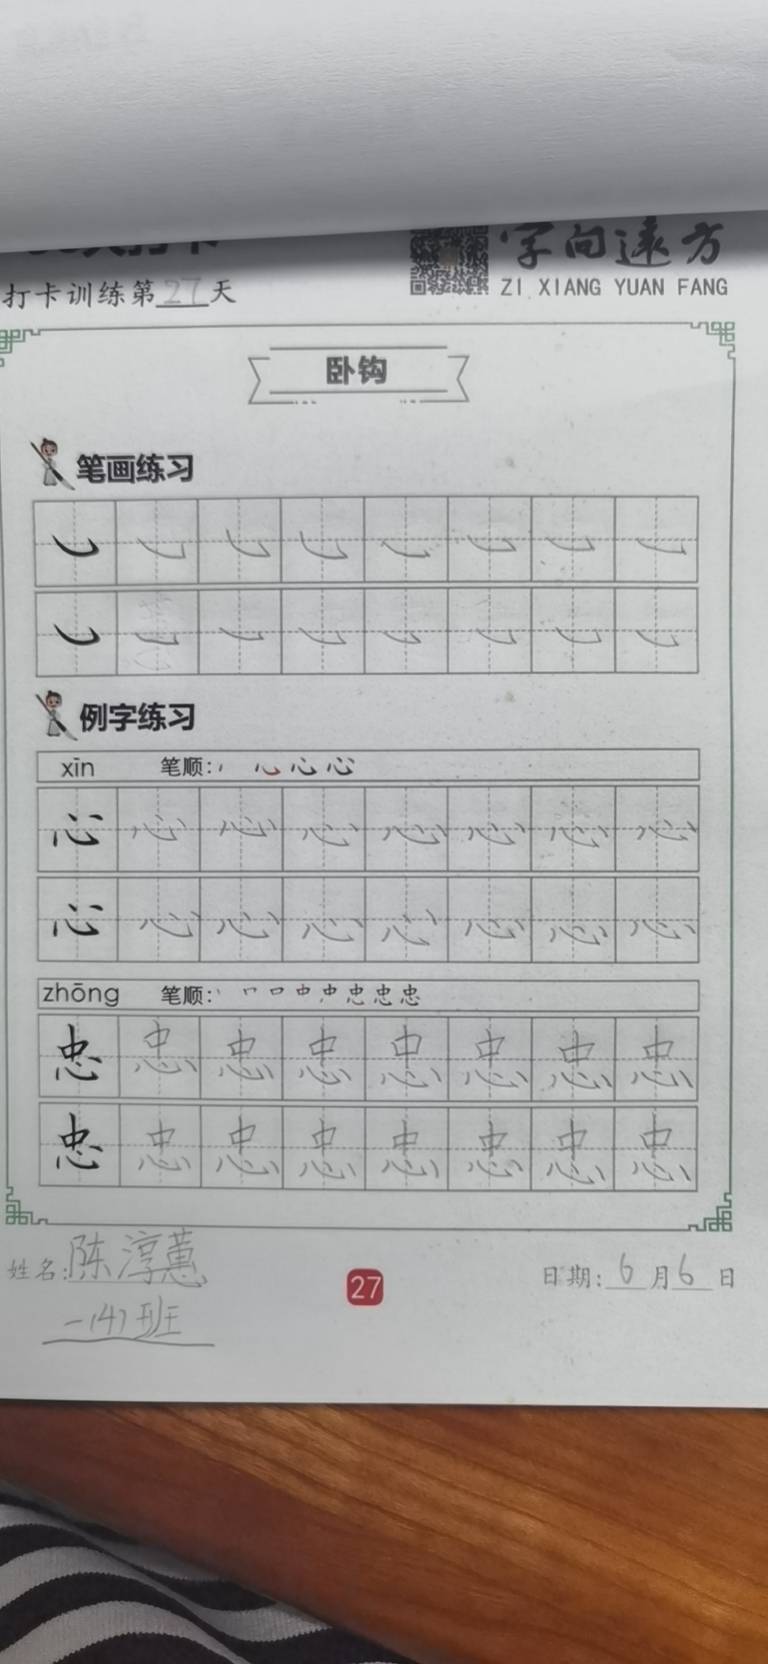 打卡训练第27天
字向远方
ZI XIANG YUAN FANG
卧钩
笔画练习
例字练习
xīn 笔顺: 心 心
心 心 心 心 心 心 心 心
心 心 心 心 心 心 心 心
zhōng 笔顺: 丨 口 口 中 中 忠 忠 忠
忠 忠 忠 忠 忠 忠 忠 忠
忠 忠 忠 忠 忠 忠 忠 忠
姓名: 陈淳蕙
一(4)班
27
日期: 6月6日